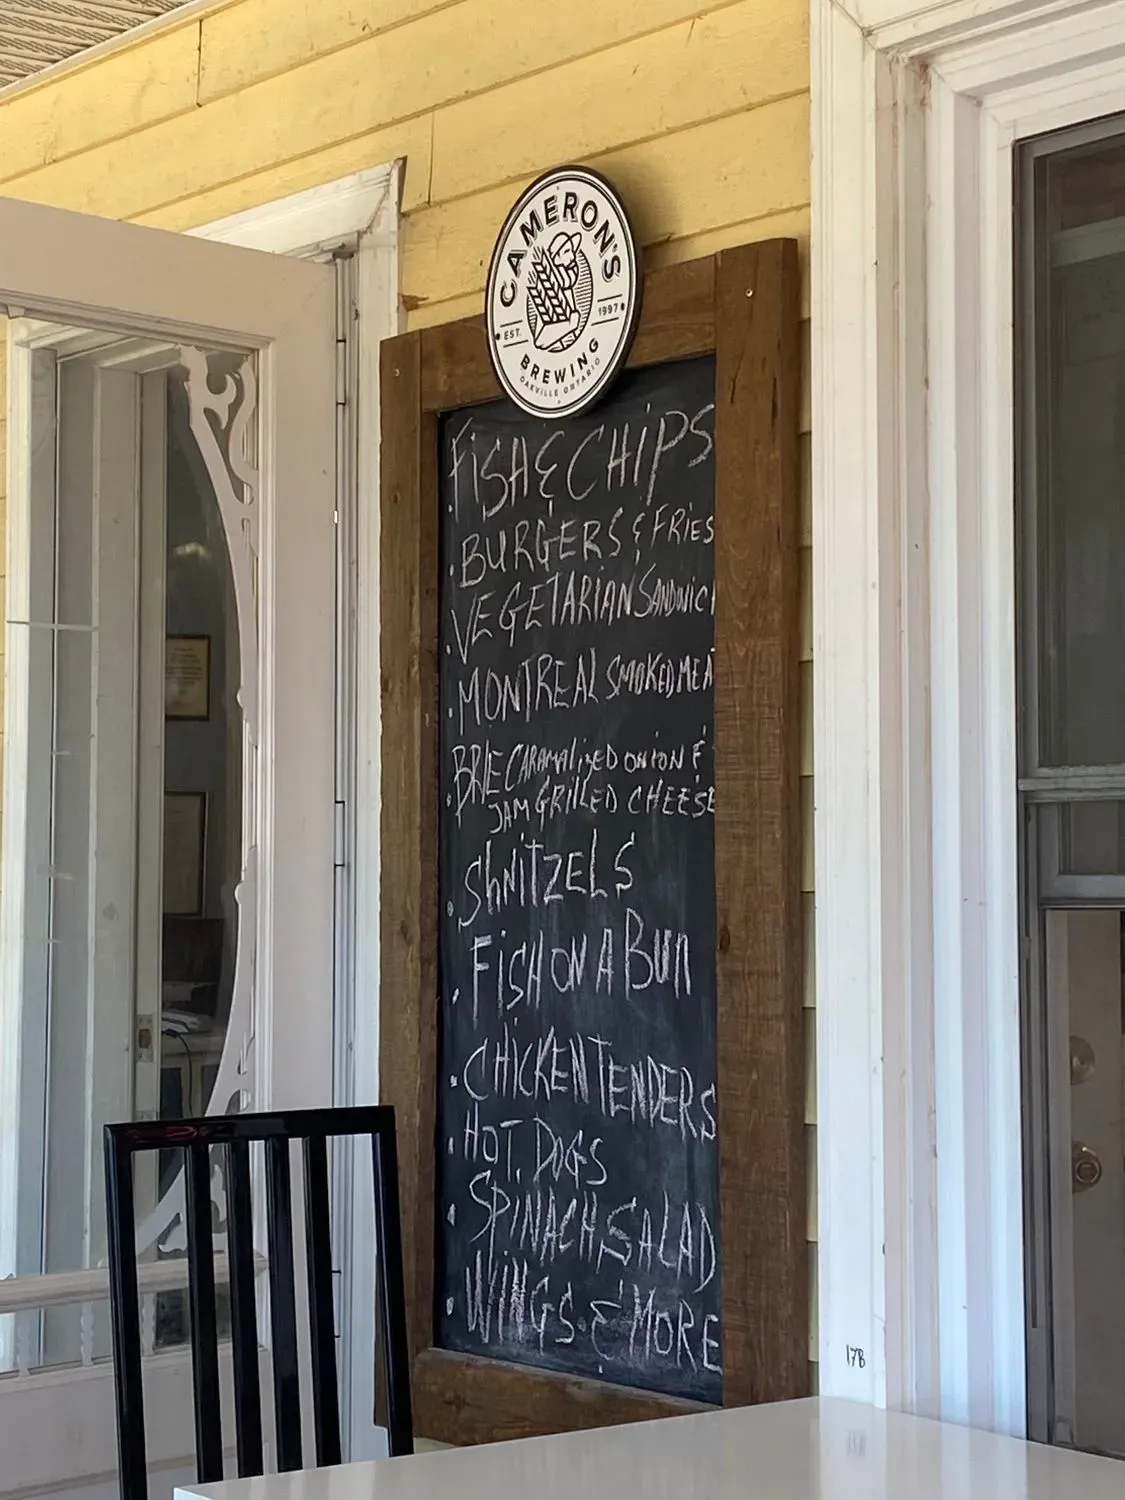 CAMERON'S
EST. 1997
BREWING
OAKVILLE ONTARIO
FISH & CHIPS
BURGERS & FRIES
VEGETARIAN SANDWICH
MONTREAL SMOKED MEA
BRIE CARAMALIZED ONION &
JAM GRILLED CHEESE
ShNITZELS
FISH ON A BUN
CHICKEN TENDERS
HOT DOGS
SPINACH SALAD
WINGS & MORE
17B